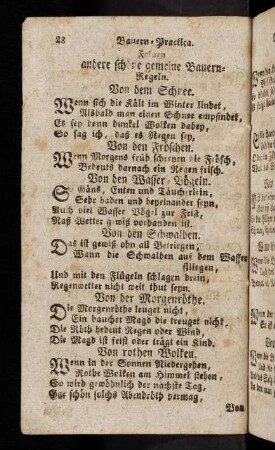 28 Bauern-Practica.
Folgen
andere schöne gemeine Bauern-
Regeln.
Von dem Schnee.
Wenn sich die Kält im Winter lindet,
Alsbald man einen Schnee empfindet,
Es sey denn dunkel Wolken dabey,
So sag ich, daß es Regen sey,
Von den Fröschen.
Wenn Morgens früh schreyen die Frösch,
Bedeuts darnach ein Regen frisch.
Von den Wasser-Vögeln.
So Gäns, Enten und Täucherlein,
Sehr baden und beyeinander seyn,
Auch viel Wasser Vögel zur Frist,
Naß Wetter gwiß vorhanden ist.
Von den Schwalben.
Das ist gewiß ohn all Betriegen,
Wann die Schwalben auf dem Wasser
Fliegen,
Und mit den Flügeln schlagen drein,
Regenwetter nicht weit thut seyn.
Von der Morgenröthe.
Die Morgenröthe leuget nicht,
Ein bauchet Magd die treuget nicht,
Die Röth bedeut Regen oder Wind,
Die Magd ist feist oder trägt ein Kind.
Von rothen Wolken.
Wenn in der Sonnen Niedergehen,
Rothe Wolken am Himmel stehen,
So wird gewöhnlich der nachste Tag,
Gar schön solchs Abendröth vermag,
Von